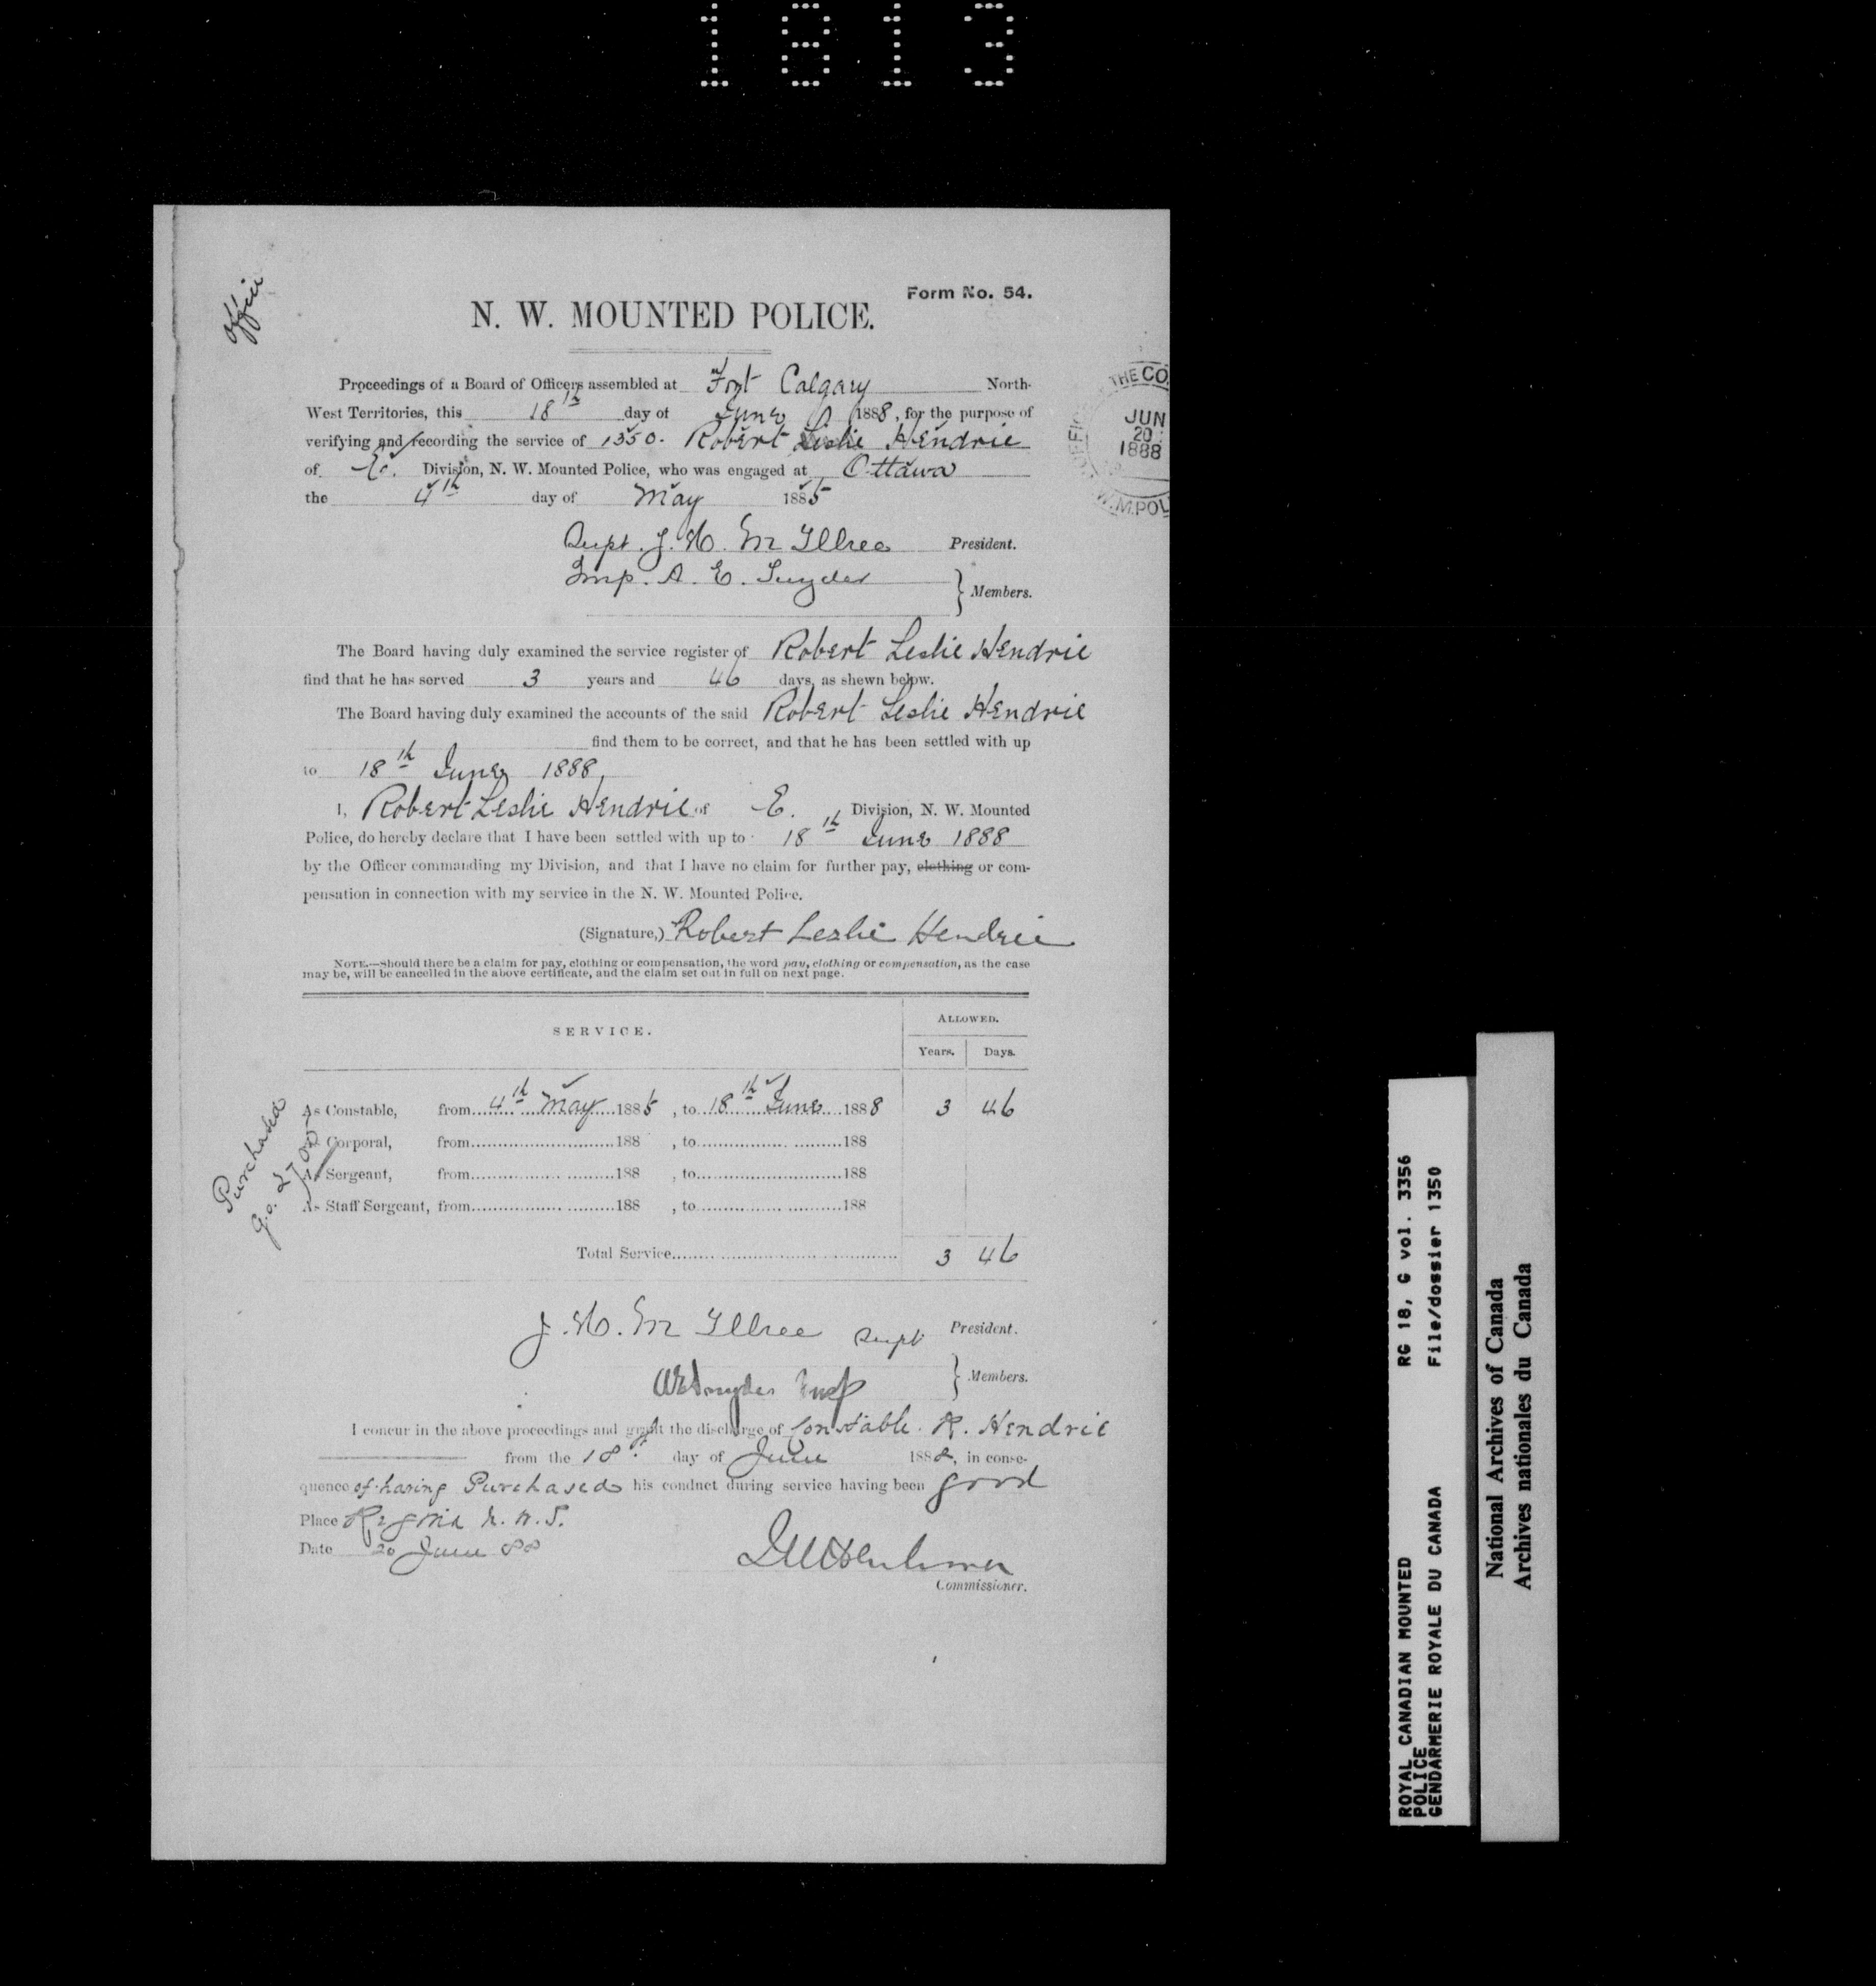 1813
Office
Form No. 54.
N. W. MOUNTED POLICE.
Proceedings of a Board of Officers assembled at Fort Calgary North-
West Territories, this 18th day of June 1888, for the purpose of
verifying and recording the service of 1350. Robert Leslie Hendrie
of E. Division, N. W. Mounted Police, who was engaged at Ottawa
the 4th day of May 1885
THE CO
JUN
20
1888
W.M.POL
Supt. J. H. McIllree President.
Insp. A. E. Snyder } Members.
The Board having duly examined the service register of Robert Leslie Hendrie
find that he has served 3 years and 46 days, as shewn below.
The Board having duly examined the accounts of the said Robert Leslie Hendrie
find them to be correct, and that he has been settled with up
to 18th June 1888
I, Robert Leslie Hendrie of E. Division, N. W. Mounted
Police, do hereby declare that I have been settled with up to 18th June 1888
by the Officer commanding my Division, and that I have no claim for further pay, clothing or com-
pensation in connection with my service in the N. W. Mounted Police.
(Signature,) Robert Leslie Hendrie
NOTE.—Should there be a claim for pay, clothing or compensation, the word pay, clothing or compensation, as the case
may be, will be cancelled in the above certificate, and the claim set out in full on next page.
SERVICE.
ALLOWED.
Years. Days.
As Constable, from 4th May 1885, to 18th June 1888 3 46
As Corporal, from 188 , to 188
As Sergeant, from 188 , to 188
As Staff Sergeant, from 188 , to 188
Total Service 3 46
Purchased
J. H. McIllree Supt President.
A E Snyder Insp } Members.
I concur in the above proceedings and grant the discharge of Constable R. Hendrie
from the 18th day of June 1888, in conse-
quence of having Purchased his conduct during service having been good
Place Regina N. W. T.
Date 20 June 88
Commissioner.
ROYAL CANADIAN MOUNTED RG 18, G vol. 3356
POLICE
GENDARMERIE ROYALE DU CANADA File/dossier 1350
National Archives of Canada
Archives nationales du Canada